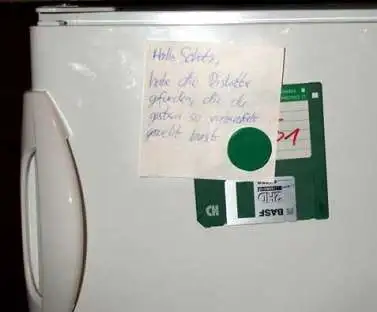 Hallo Schatz,
habe die Diskette
gefunden, die du
gestern so verzweifelt
gesucht hast.
51
BASF
2HD